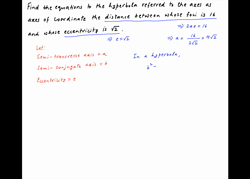 Find the equations to the hyperbola referred to the axes as
axes of coordinate the distance between whose foci is 16
and whose eccentricity is √2.
⇒ e = √2
⇒ 2ae = 16
⇒ a = 16/2√2 = 4√2
Let:
Semi-transverse axis = a
Semi-conjugate axis = b
Eccentricity = e
In a hyperbola,
b² =